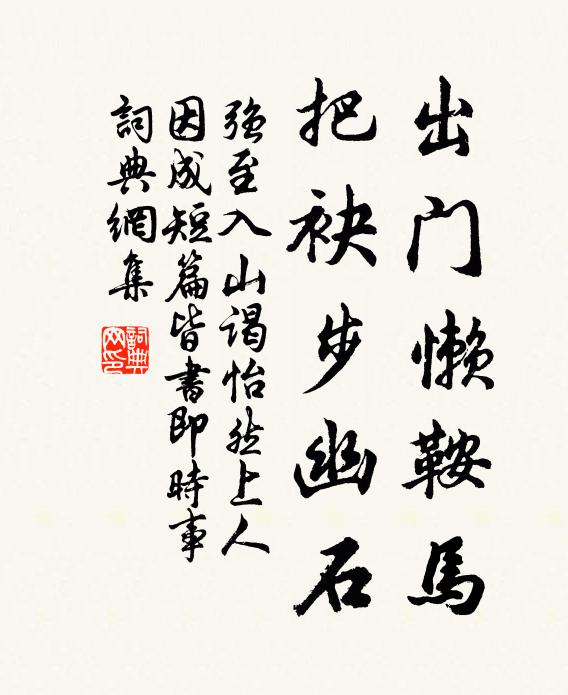 出门懒鞍馬
把袂步幽石
强至入山谒怡然上人
因成短篇皆書即時事
詞典網集
詞典
网印